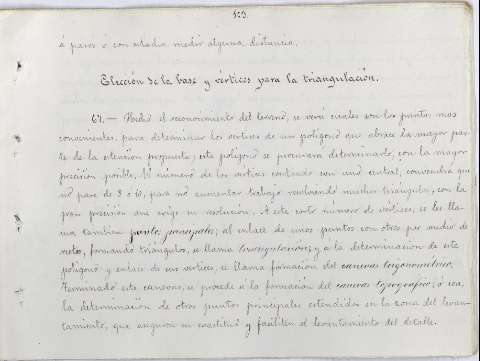 103.
á pasos ó con estadia medir alguna distancia.
Elección de la base y vértices para la triangulación.
67.— Hecho el reconocimiento del terreno, se verá cuales son los puntos mas
convenientes, para determinar los vertices de un polígono que abrace la mayor par-
te de la estension propuesta; este polígono se procurará determinarlo, con la mayor
precision posible. El número de los vertices contando con uno central, convendrá que
no pase de 8 ó 6, para no aumentar trabajo resolviendo muchos triangulos, con la
gran precision que exige su resolucion. A este corto número de vértices, se les lla-
ma tambien puntos principales; al enlace de unos puntos con otros por medio de
rectas, formando triángulos, se llama triangulacion; y á la determinacion de este
polígono y enlace de sus vertices, se llama formacion del canevas trigonometrico.
Terminado este canevas, se procede á la formacion del canevas topografico, ó sea
la determinacion de otros puntos principales estendidos en la zona del levan-
tamiento, que aseguren su exactitud y faciliten el levantamiento del detalle.